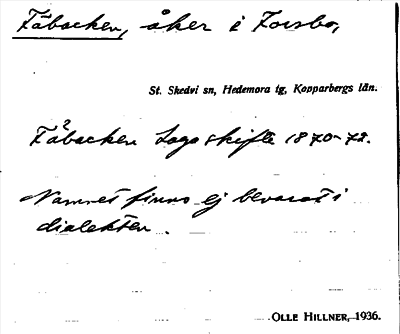 Fåbacken, åker i Forsbo,
St. Skedvi sn, Hedemora tg, Kopparbergs län.
Fåbacken Laga skifte 1870-72.
Namnet finns ej bevarat i
dialekten.
OLLE HILLNER, 1936.